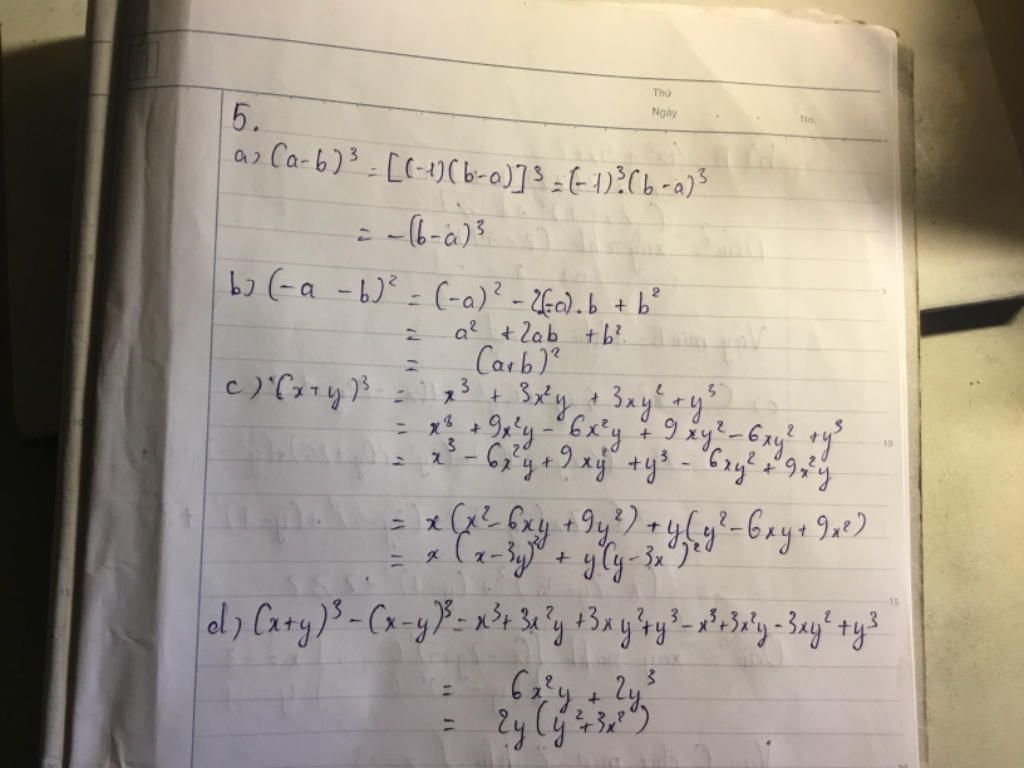 Thứ
Ngày
No.
5.
a) (a-b)³ = [(-1)(b-a)]³ = (-1)³.(b-a)³
= -(b-a)³
b) (-a -b)² = (-a)² - 2(-a).b + b²
= a² + 2ab + b²
= (a+b)²
c) (x+y)³ = x³ + 3x²y + 3xy² + y³
= x³ + 9x²y - 6x²y + 9xy² - 6xy² + y³
= x³ - 6x²y + 9xy² + y³ - 6xy² + 9x²y
= x(x² - 6xy + 9y²) + y(y² - 6xy + 9x²)
= x(x-3y)² + y(y-3x)²
d) (x+y)³ - (x-y)³ = x³ + 3x²y + 3xy² + y³ - x³ + 3x²y - 3xy² + y³
= 6x²y + 2y³
= 2y(y² + 3x²)